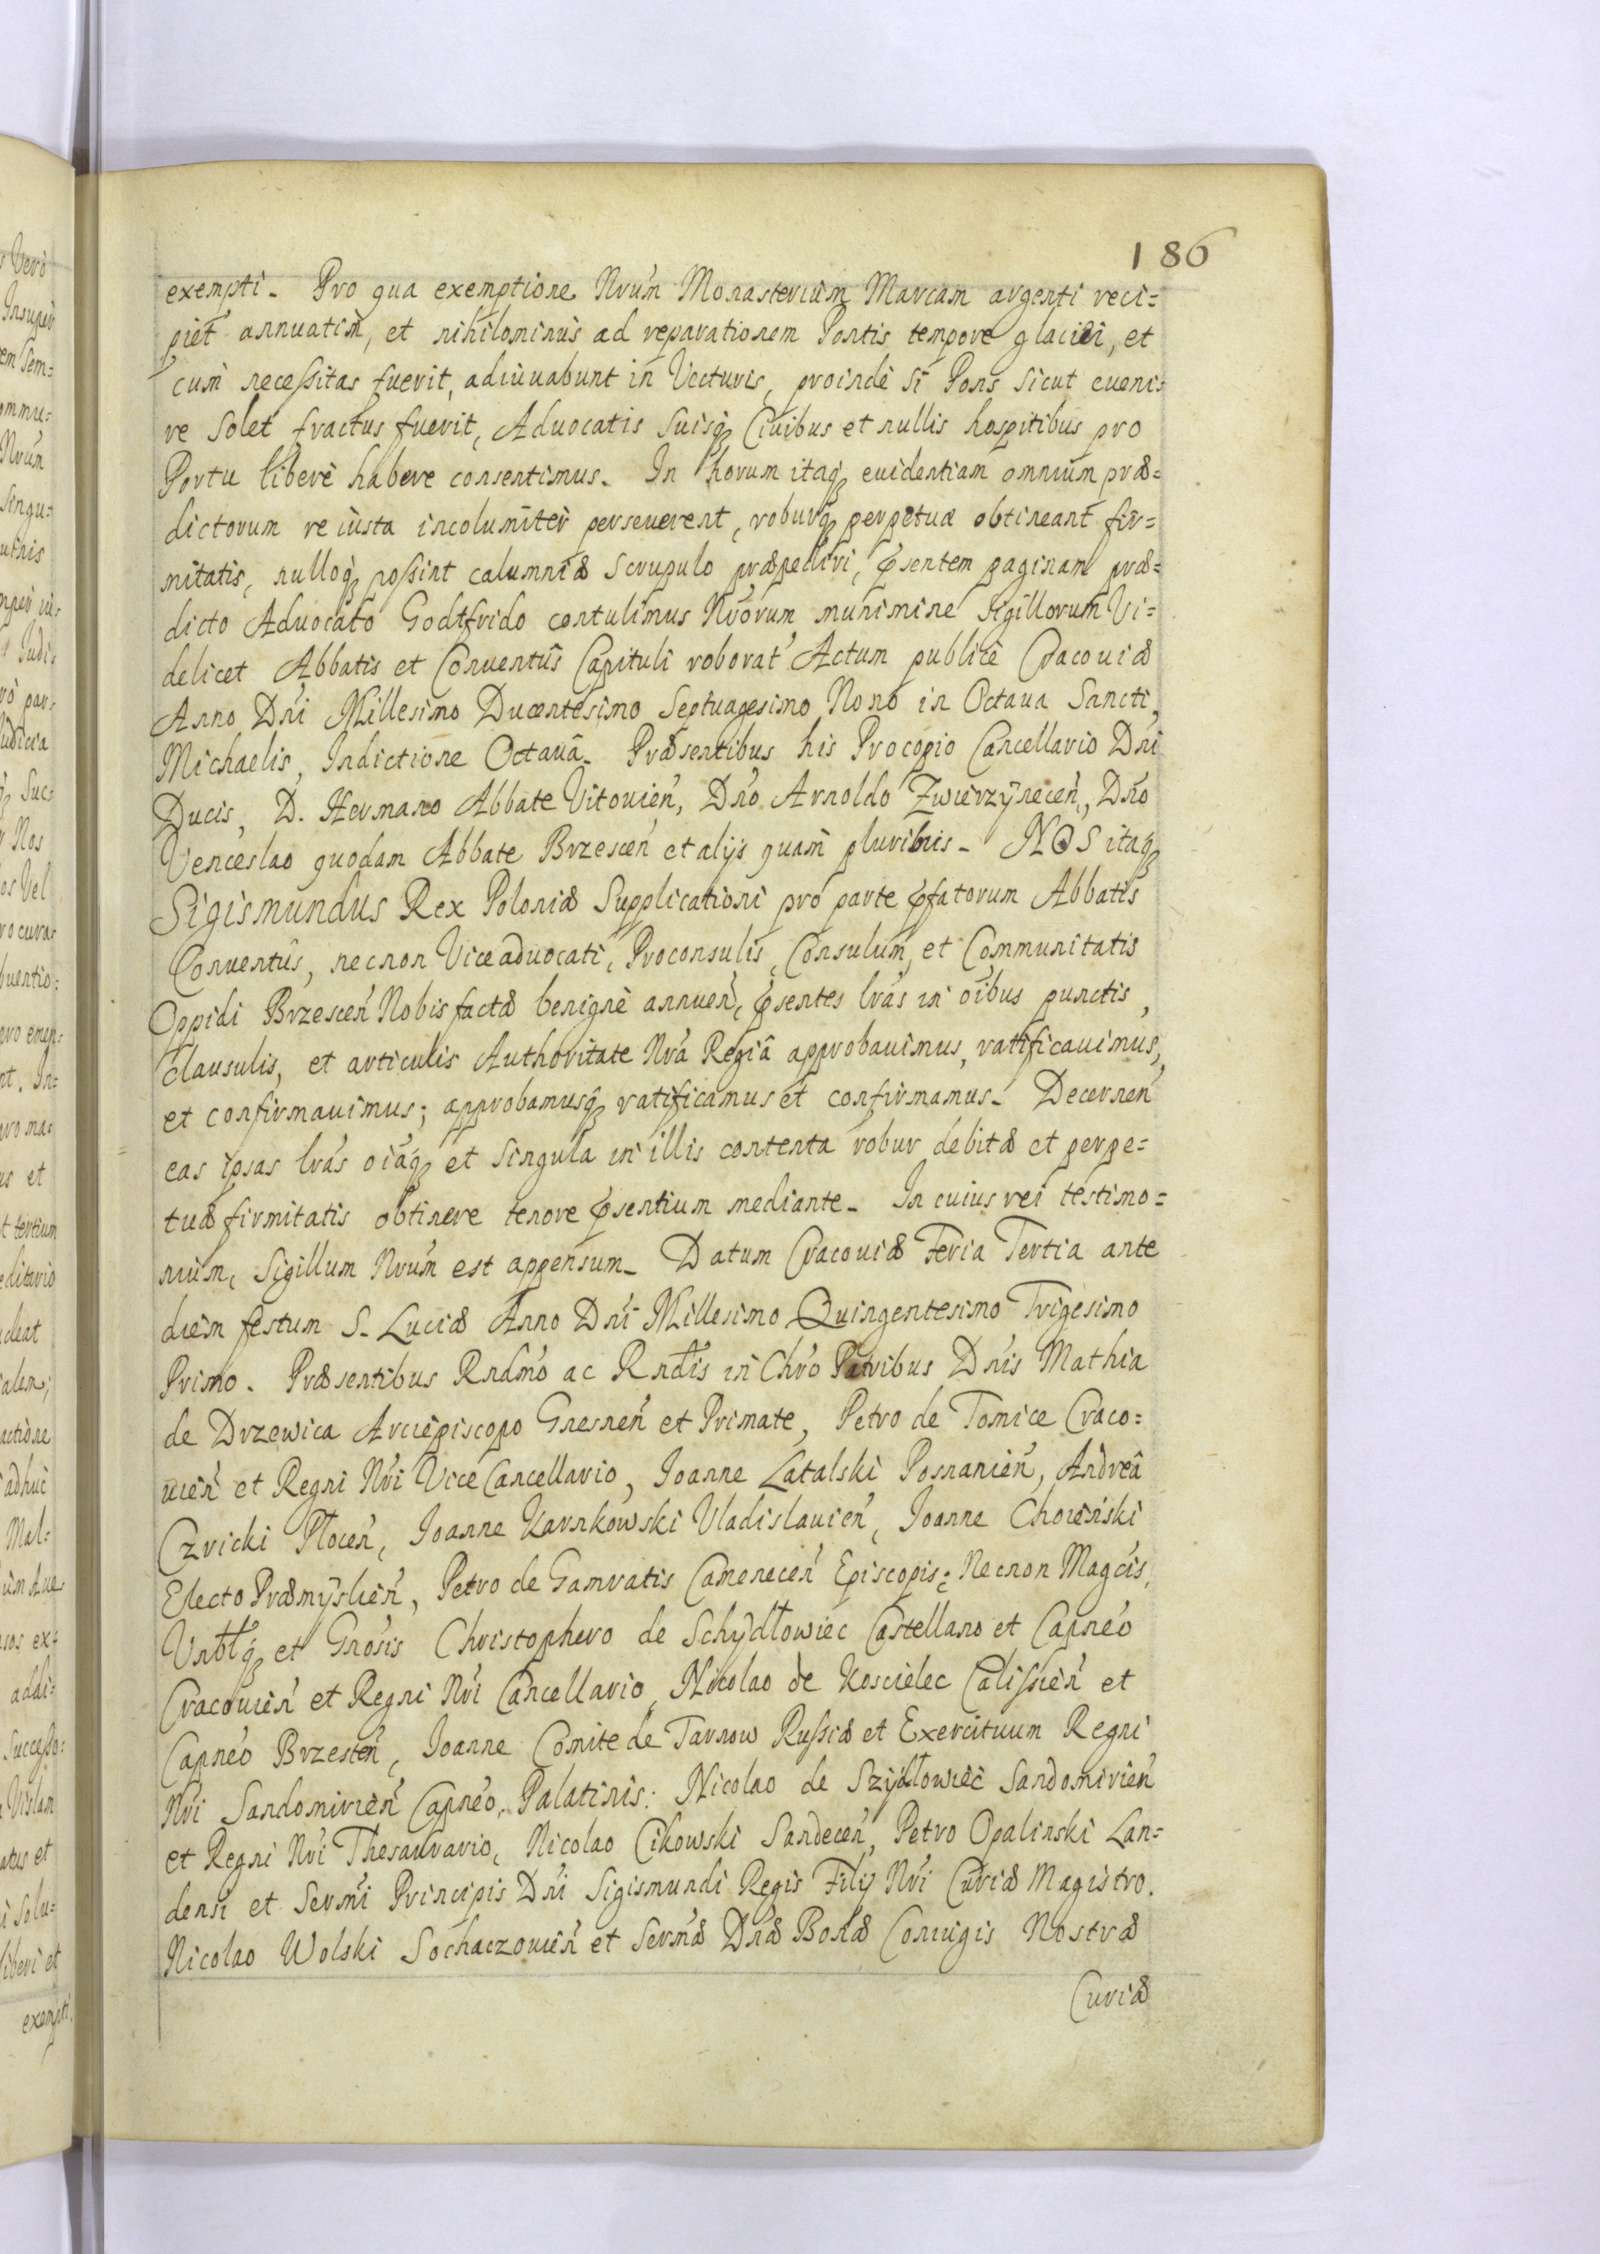 186
exempti. Pro qua exemptione Nrum Monasterium Marcam argenti reci=
piet annuatim, et nihilominus ad reparationem Pontis tempore glaciei, et
cum necessitas fuerit, adiuuabunt in Vecturis, proinde si Pons sicut eueni=
re solet fractus fuerit, Aduocatis suisq; Ciuibus et nullis hospitibus pro
Portu liberè habere consentimus. In horum itaq; euidentiam omnium præ=
dictorum re iusta incolumiter perseuerent, roburq; perpetuæ obtineant fir=
mitatis, nulloq; possint calumniæ scrupulo præpediri, pñsentem paginam præ=
dicto Aduocato Godtfrido contulimus Nrorum munimine sigillorum Vi=
delicet Abbatis et Conventûs Capituli roborat' Actum publicè Cracouiæ
Anno Dni Millesimo Ducentesimo Septuagesimo Nono in Octaua Sancti
Michaelis, Indictione Octauâ. Præsentibus his Procopio Cancellario Dni
Ducis, D. Hermano Abbate Vitouień, Dno Arnoldo Zwierzÿneceń, Dno
Venceslao quodam Abbate Brzesceń et alijs quam pluribus. NOS itaq;
Sigismundus Rex Poloniæ Supplicationi pro parte pfatorum Abbatis
Conuentûs, necnon Viceaduocati, Proconsulis, Consulum, et Communitatis
Oppidi Brzesceń Nobis factæ benignè annueń, psentes lras in oibus punctis,
clausulis, et articulis Authoritate Nrâ Regiâ approbauimus, ratificauimus,
et confirmauimus; approbamusq; ratificamus et confirmamus. Decerneń
eas ipsas lras oiaq; et singula in illis contenta robur debitæ et perpe=
tuæ firmitatis obtinere tenore psentium mediante. In cuius rei testimo=
nium, Sigillum Nrum est appensum. Datum Cracouiæ Feria Tertia ante
diem festum S. Luciæ Anno Dni Millesimo Quingentesimo Trigesimo
Primo. Præsentibus Rndmo ac Rndis in Chro Patribus Dnis Mathia
de Drzewica Arciepiscopo Gnesneń et Primate, Petro de Tomice Craco=
uień et Regni Nri Vice Cancellario, Joanne Latalski Posnanień, Andreâ
Czricki Płoceń, Joanne Karnkowski Vladislauień, Joanne Choieński
Electo Præmÿslień, Petro de Gamratis Cameneceń Episcopis: Necnon Magcis,
et Gnosis Christophero de Schÿdłowiec Castellano et Capneo
Cracouień et Regni Nri Cancellario, Nicolao de Koscielec Calissień et
Capneo Brzesteń, Joanne Comite de Tarnow Russiæ et Exercituum Regni
Nri Sandomirień Capneo, Palatinis: Nicolao de Szÿdłowiec Sandomirień
et Regni Nri Thesaurario, Nicolao Cikowski Sandeceń, Petro Opalinski Lan=
densi et Sermi Principis Dni Sigismundi Regis Filij Nri Curiæ Magistro.
Nicolao Wolski Sochaczouień et Sermæ Dnæ Bonæ Coniugis Nostræ
Curiæ